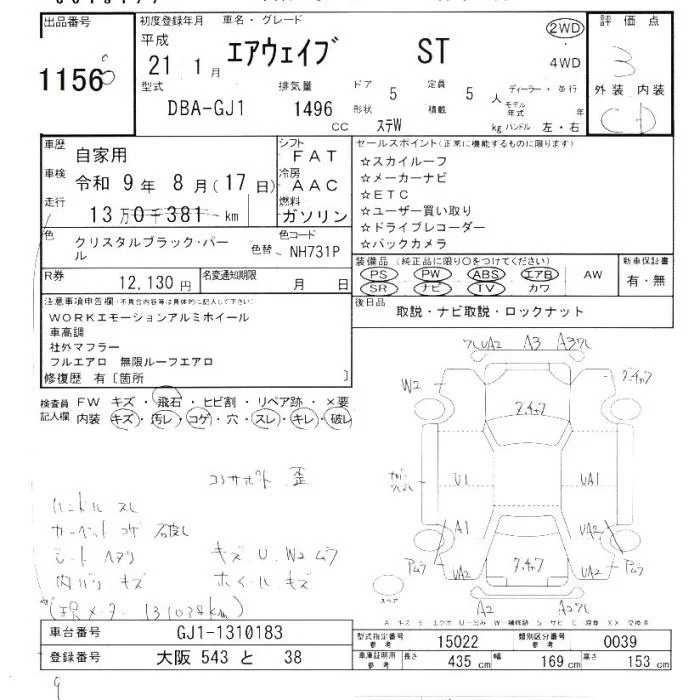 出品番号
1156
初度登録年月 車名・グレード
平成 21 1月 エアウェイブ ST
2WD
4WD
型式 排気量 ドア 5 定員 5人 ディーラー・並行
DBA-GJ1 1496 CC 形状 ステW 積載 kg モデル年式 年 ハンドル 左・右
評価点
3
外装 内装
C D
車歴 自家用
車検 令和 9年 8月(17日)
走行 13万0千381km
シフト FAT
冷房 AAC
燃料 ガソリン
色 クリスタルブラック・パール
色替 色コード NH731P
R券 12,130円 名変通知期限 月 日
セールスポイント(正常に機能するものに限ります)
☆スカイルーフ
☆メーカーナビ
☆ETC
☆ユーザー買い取り
☆ドライブレコーダー
☆バックカメラ
装備品(純正品に限り○をつけてください)
PS PW ABS エアB AW
SR ナビ TV カワ
新車保証書
有・無
後日品 取説・ナビ取説・ロックナット
注意事項申告欄(不具合内容等は具体的に記入して下さい)
WORKエモーションアルミホイール
車高調
社外マフラー
フルエアロ 無限ルーフエアロ
修復歴 有〔箇所 〕
検査員 FW キズ・飛石・ヒビ割・リペア跡・×要
記入欄 内装 キズ・汚レ・コゲ・穴・スレ・キレ・破レ
コアサポート 歪
ハンドル スレ
カーペット コゲ 破レ
シート ヘタリ キズ U W2 ムラ
内バリ キズ ホイール キズ
UA2 A3
W2
U1 UA1
A1 UA2
Aムラ UA2 UA2 Pムラ
A2
スペア
車台番号 GJ1-1310183
登録番号 大阪 543 と 38
型式指定番号 参考 15022 類別区分番号 参考 0039
車庫証明用 参考 長さ 435 cm 幅 169 cm 高さ 153 cm